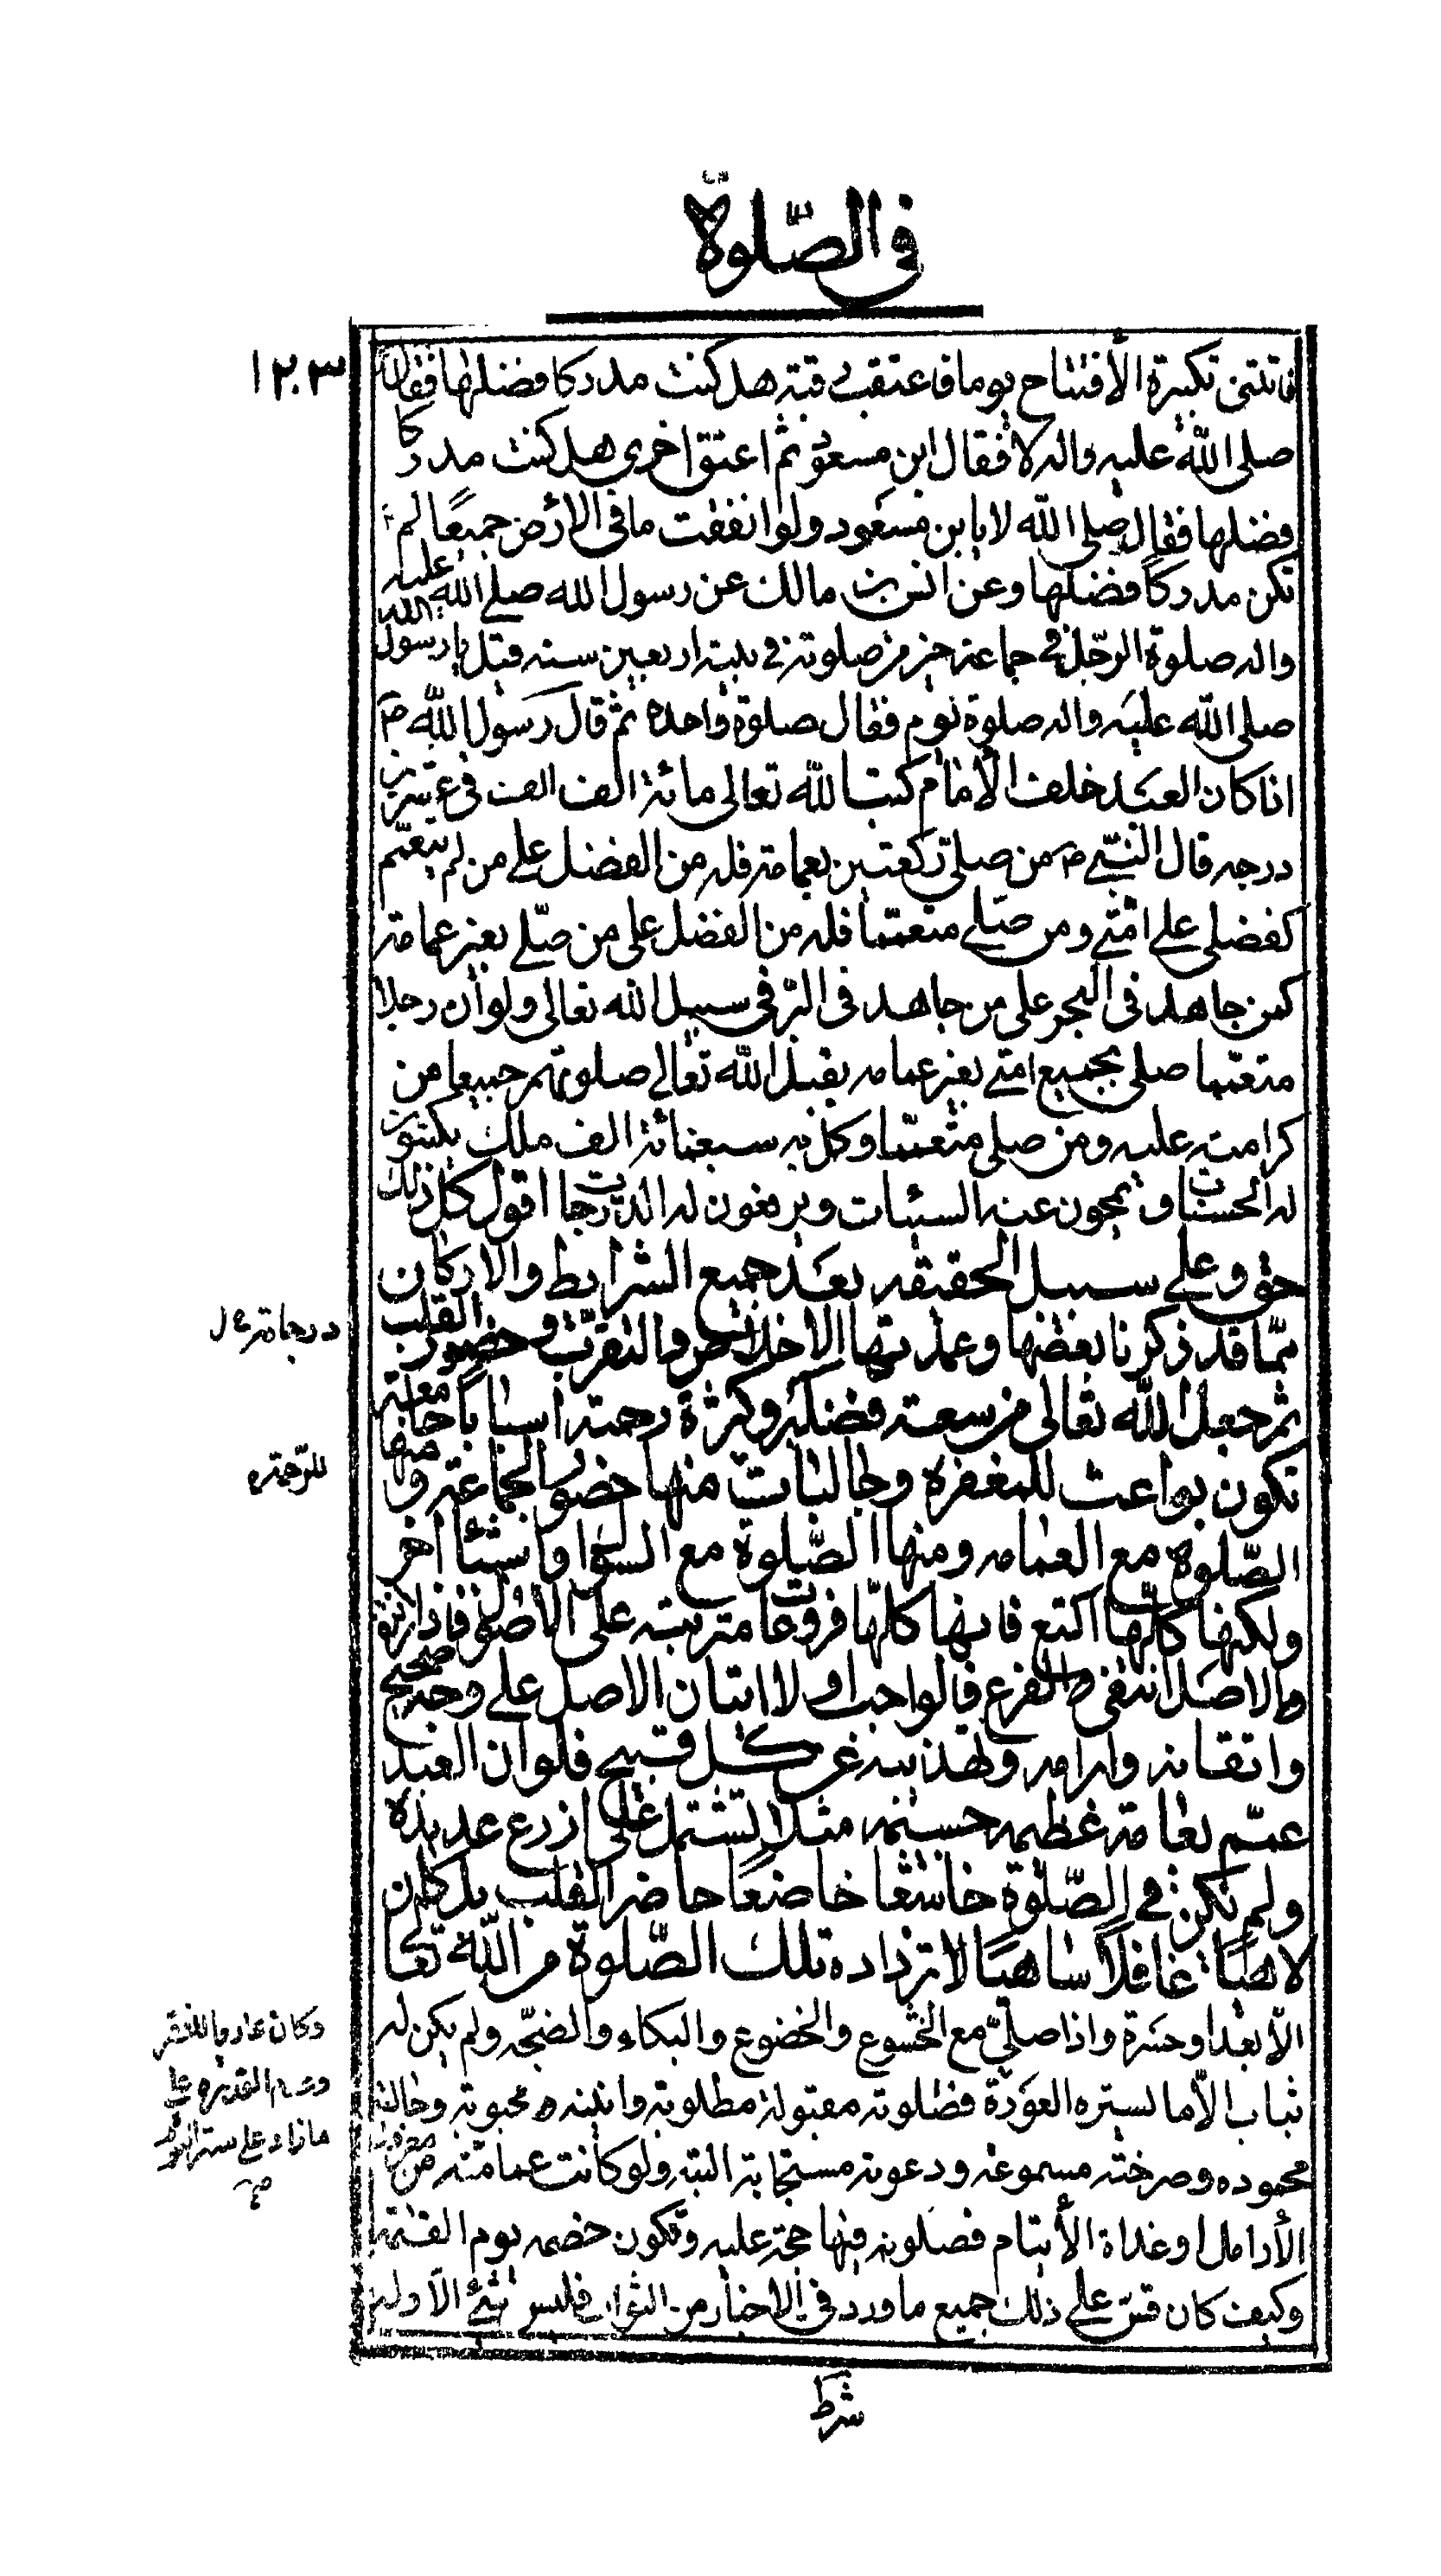 في الصّلوة
١٢٠٣
فاتتنى تكبيرة الأفتتاح يوما فاعتقت رقبة هل كنت مدركا فضلها فقال
صلى الله عليه واله لا فقال ابن مسعود ثم اعتق اخرى هل كنت مدركا
فضلها فقال صلى الله لا يابن مسعود ولو انفقت ما فى الارض جميعًا لم
تكن مدركًا فضلها وعن انس بن مالك عن رسول الله صلے الله عليه
واله صلوة الرّجل في جماعة خير من صلوته في بيته اربعين سنه قيل يا رسول الله
صلى الله عليه واله صلوة يوم فقال صلوة واحده ثم قال رسول الله ص
اذا كان العبد خلف الأمام كتب الله تعالى مائة الف الف فى عشرين
درجه قال النبيّ ص من صلى ركعتين بعمامة فله من الفضل على من لم يتعمّم
كفضلى على امّتي ومن صلے متعمّما فله من الفضل على من صلّے بغير عمامة
كمن جاهد فى البحر على من جاهد فى البرّ فى سبيل الله تعالى ولو أن رجلا
متعمّما صلى بجميع امتے بغير عمامه يقبل الله تعالى صلوتهم جميعا من
كرامته عليه ومن صلى متعمّما وكل به سبعمائة الف ملك يكتبون
له الحسنات و يمحون عنه السيئات ويرفعون له الدّرجات اقول كل ذلك
حق وعلے سبيل الحقيقه بعد جميع الشرايط والاركان
ممّا قد ذكرنا بعضها وعمدتها الاخلاص والتقرّب وحضور القلب
ثم جعل الله تعالى من سعة فضله وكثرة رحمته اسبابًا خاصّة معها
تكون بواعث للمغفره وجالبات منها حضور الجماعة و منها
الصّلوة مع العمامه ومنها الصّلوة مع السواك واشيئا اخر
ولكنها كلّها اكتع فانها كلّها فروعات مترتبته على الاصول فاذا انتفى
الاصل انتفى الفرع فالواجب اولا اتيان الاصل على وجه صحيح
واتقانه وابرامه وتهذيبه عن كل قبيح فلو ان العبد
عمّم بعمامة عظيمه حسينه مثلا تشتمل على اذرع عديده
ولم تكن في الصّلوة خاشعا خاضعًا حاضر القلب بل كان
لاهيًا غافلاً ساهيًا لا تزداده تلك الصّلوة من الله تعالى
الّا بعدا وحسرة واذا صلىّ مع الخشوع والخضوع والبكاء والضجّه ولم يكن له
ثياب الّا ما لستره العورة فصلوته مقبولة مطلوبة وانينه محبوبة وحالته
محموده وصرخته مسموعه ودعوته مستجابة البته ولو كانت عمامته من
الأرامل او غداة الأيتام فصلوته فيها حجة عليه وتكون خصمه يوم القيمة
وكيف كان قس على ذلك جميع ما ورد فى الاخبار من الثواب فليس شئ الّا وله
شرط
درجاته ع ل
للرّحمة
وكان عادما للفقر
وعدم القدرة على
ما زاد على ستر العورة
صح